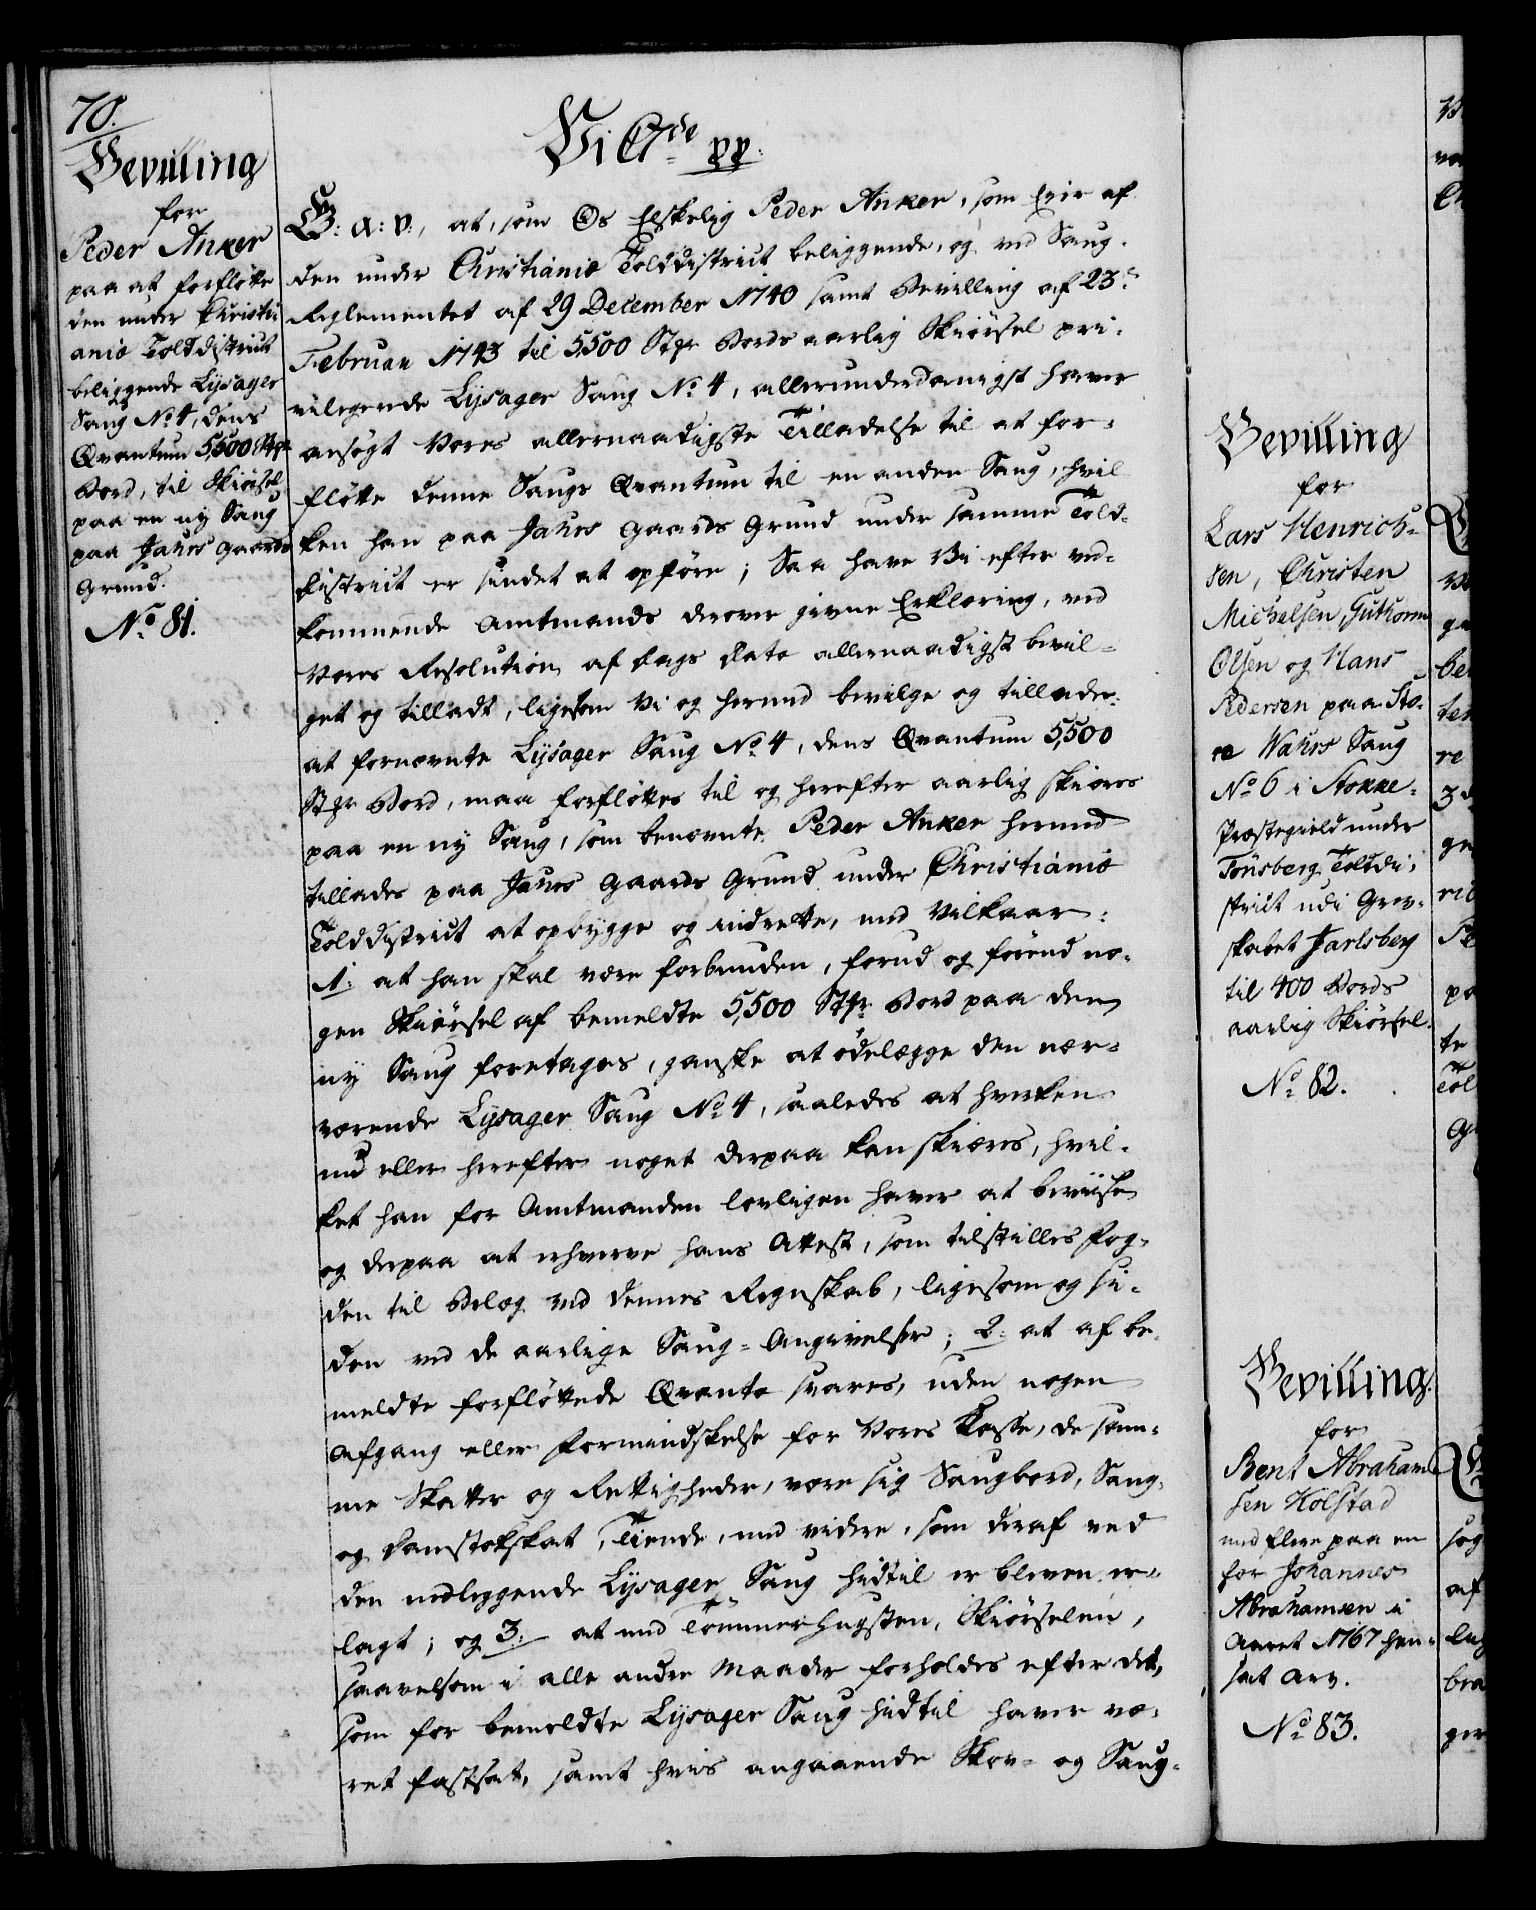 70.
Bevilling
for
Peder Anker
paa at forfløtte
den under Christi-
ania Tolddistrict
beliggende Lysager
Saug No 4, dens
Qvantum 5,500 Stkr
Bord, til Skiørsel
paa en ny Saug
paa Jahrs Gaards
Grund.
No 81.
Vi C 7de pp:
G: A: V:, at, som Os Elskelig Peder Anker, som Eier af
den under Christiania Tolddistrict beliggende, og ved Saug-
Reglementet af 29 December 1740 samt Bevilling af 23de
Februari 1743 til 5,500 Stkr Bords aarlig Skiørsel pri-
vilegerede Lysager Saug No 4, allerunderdanigst haver
ansøgt Vores allernaadigste Tilladelse til at for-
fløtte denne Saugs Qvantum til en anden Saug, hvil-
ken han paa Jahrs Gaards Grund under samme Told-
district er sindet at opføre; Saa have Vi efter ved-
kommende Amtmands derover givne Erklæring, ved
Vores Resolution af Dags Dato allernaadigst bevil-
get og tilladt, ligesom Vi og hermed bevilge og tillade:
at fornævnte Lysager Saug No 4, dens Qvantum 5,500
Stkr Bord, maa forfløttes til og herefter aarlig skiæres
paa en ny Saug, som benævnte Peder Anker hermed
tillades paa Jahrs Gaards Grund under Christiania
Tolddistrict at opbygge og indrette, med Vilkaar:
1: at han skal være forbunden, forud og førend no-
gen Skiørsel af bemeldte 5,500 Stkr Bord paa den
ny Saug foretages, ganske at ødelægge den nær-
værende Lysager Saug No 4, saaledes at hverken
nu eller herefter noget derpaa kan skiæres, hvil-
ket han for Amtmanden lovligen haver at beviise
og derpaa at erhverve hans Attest, som tilstilles Fog-
den til Belæg ved dennes Regnskab, ligesom og si-
den ved de aarlige Saug-Angivelser; 2: at af be-
meldte forfløttede Qvanto svares, uden nogen
Afgang eller Formindskelse for Vores Kasse, de sam-
me Skatter og Rettigheder, være sig Saugbord, Saug-
og Damstokskat, Tiende, med videre, som deraf ved
den nedliggende Lysager Saug hidtil er bleven er-
lagt; og 3: at med Tømmerhugsten, Skiørselen,
saavelsom i alle andre Maader forholdes efter det,
som for bemeldte Lysager Saug hidtil haver væ-
ret fastsat, samt hvis angaaende Skov- og Saug-
Bevilling
for
Lars Henrich-
sen, Christen
Michelsen, Guthorm
Olsen og Hans
Pedersen paa Sto-
re Wahrs Saug
No 6 i Stokke-
Præstegield under
Tønsberg Tolddi-
strict udi Grev-
skabet Jarlsberg
til 400 Bords
aarlig Skiørsel.
No 82.
Bevilling
for
Bent Abraham-
sen Holstad
med flere paa en
for Johannes
Abrahamsen i
Aaret 1767 hen-
sat Arv.
No 83.